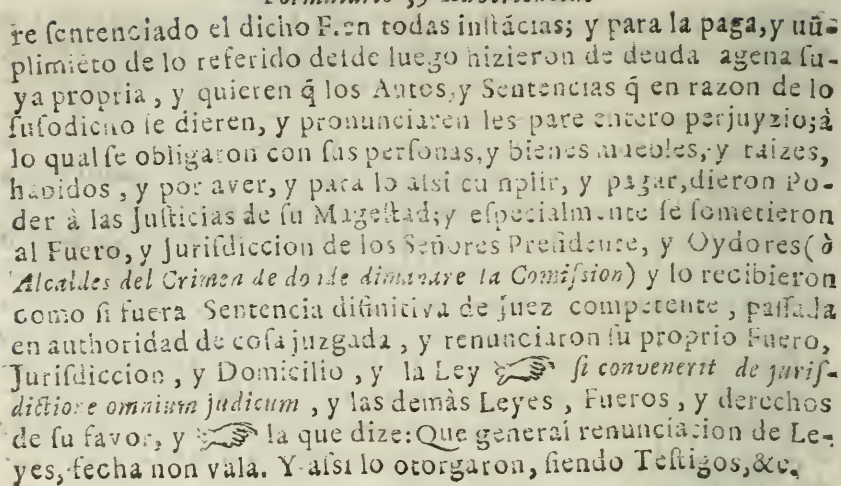 re sentenciado el dicho F.en todas instácias; y para la paga,y cũ-
plimiéto de lo referido desde luego hizieron de deuda agena su-
ya propria, y quieren q̃ los Autos,y Sentencias q̃ en razon de lo
susodicho se dieren, y pronunciaren les pare entero perjuyzio;à
lo qual se obligaron con sus personas,y bienes muebles,y raizes,
havidos, y por aver, y para lo assi cumplir, y pagar,dieron Po-
der à las Justicias de su Magestad;y especialmente se sometieron
al Fuero, y Jurisdiccion de los Señores Presidente, y Oydores(ò
Alcaldes del Crimen de donde dimanare la Comission) y lo recibieron
como si fuera Sentencia difinitiva de juez competente, passada
en authoridad de cosa juzgada, y renunciaron su proprio Fuero,
Jurisdiccion, y Domicilio, y la Ley ☞ si convenerit de juris-
dictione omnium judicum, y las demàs Leyes, Fueros, y derechos
de su favor, y ☞ la que dize:Que general renunciacion de Le-
yes, fecha non vala. Y assi lo otorgaron, siendo Testigos,&c.